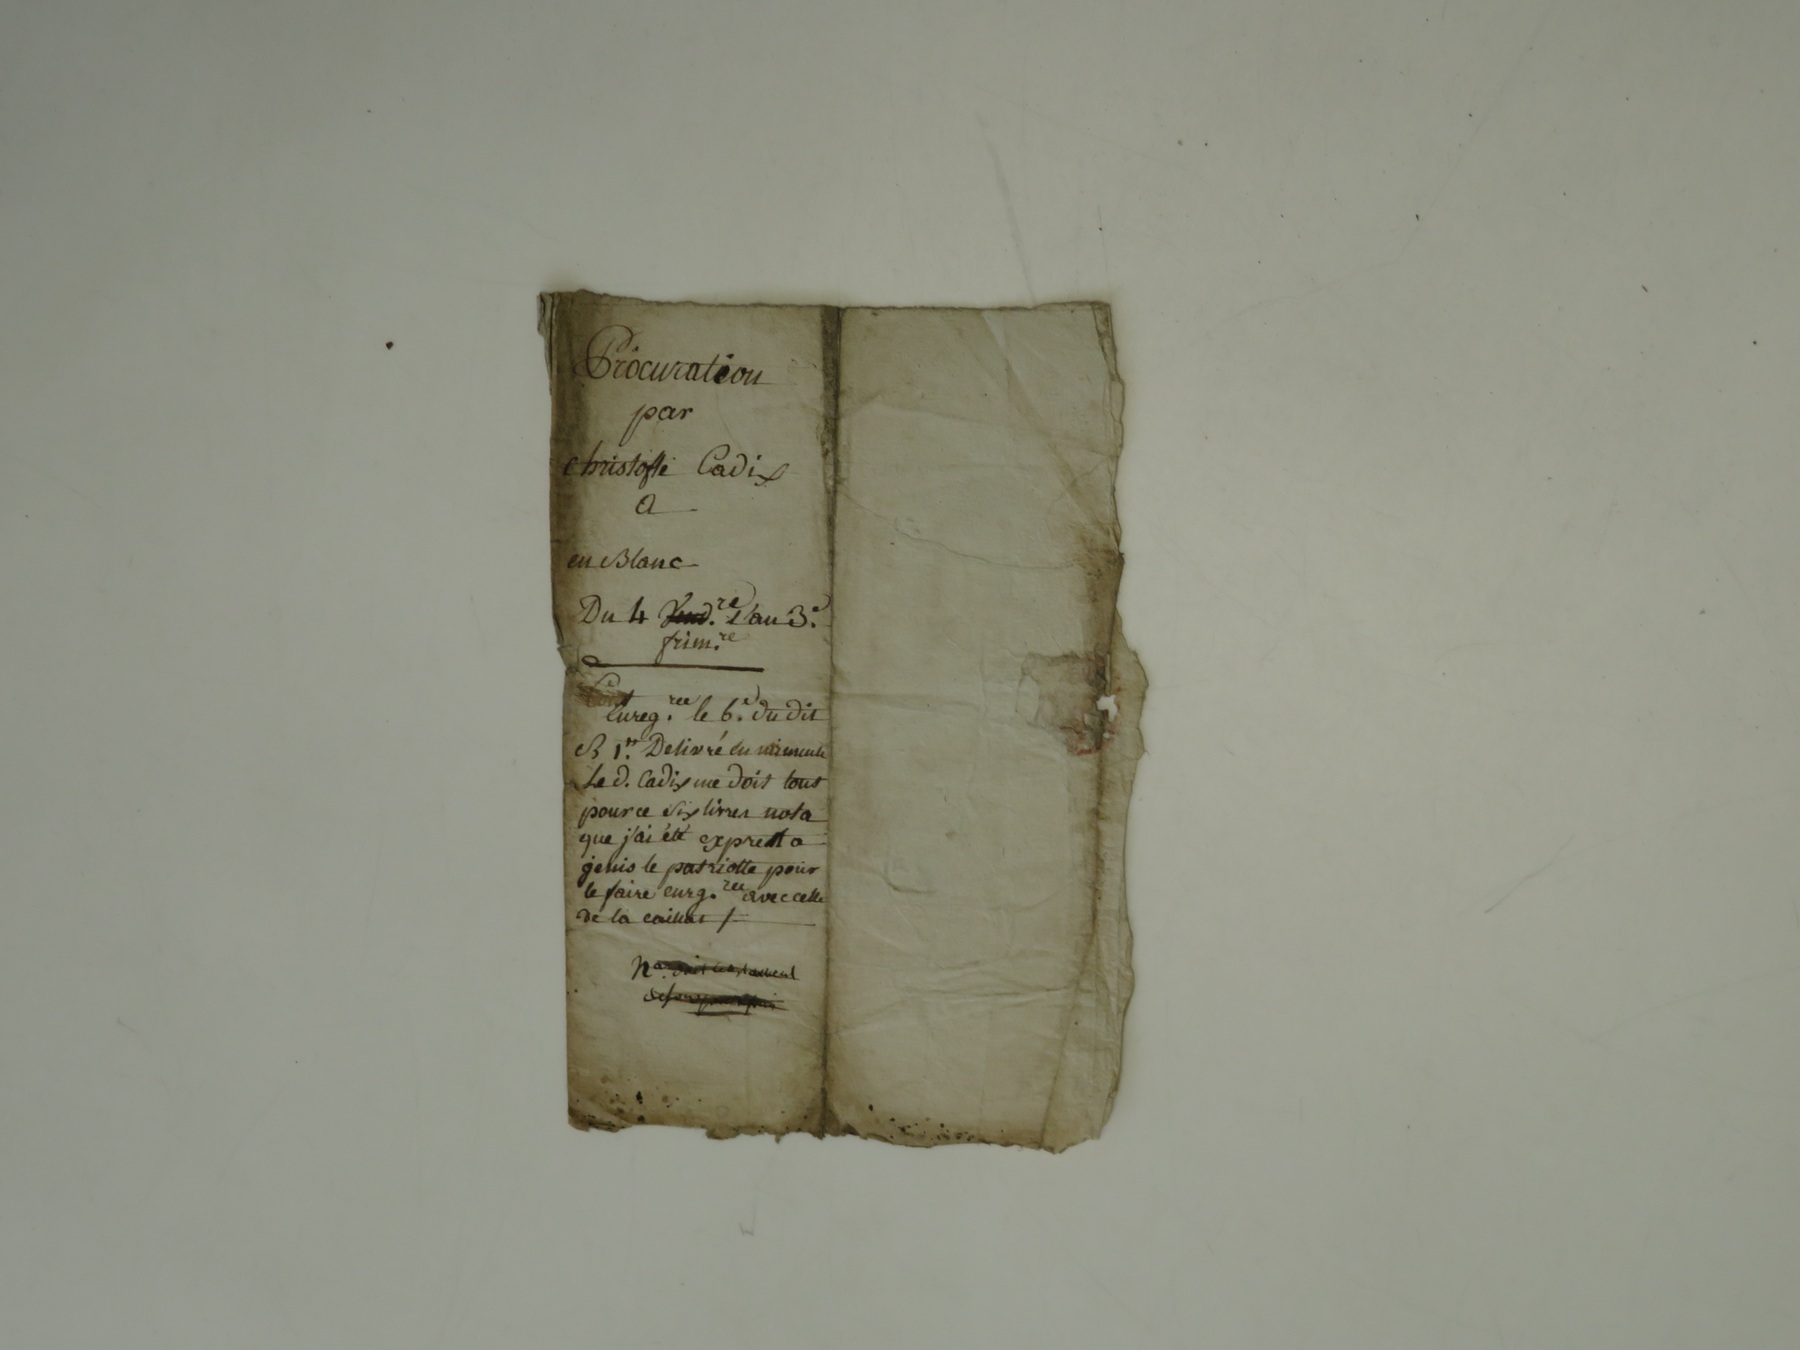 Procuration
par
christofle Cadix
a
en Blanc
Du 4 Vend.re l'an 3.e
frim.re
Enreg.rée le 6.e du dit
B 1.re Delivré en minnute
Le d. Cadix me doit tout
pource Six livres nota
que j'ai été exprest a
genis le patriotte pour
le faire enrg.rée avec celle
de la